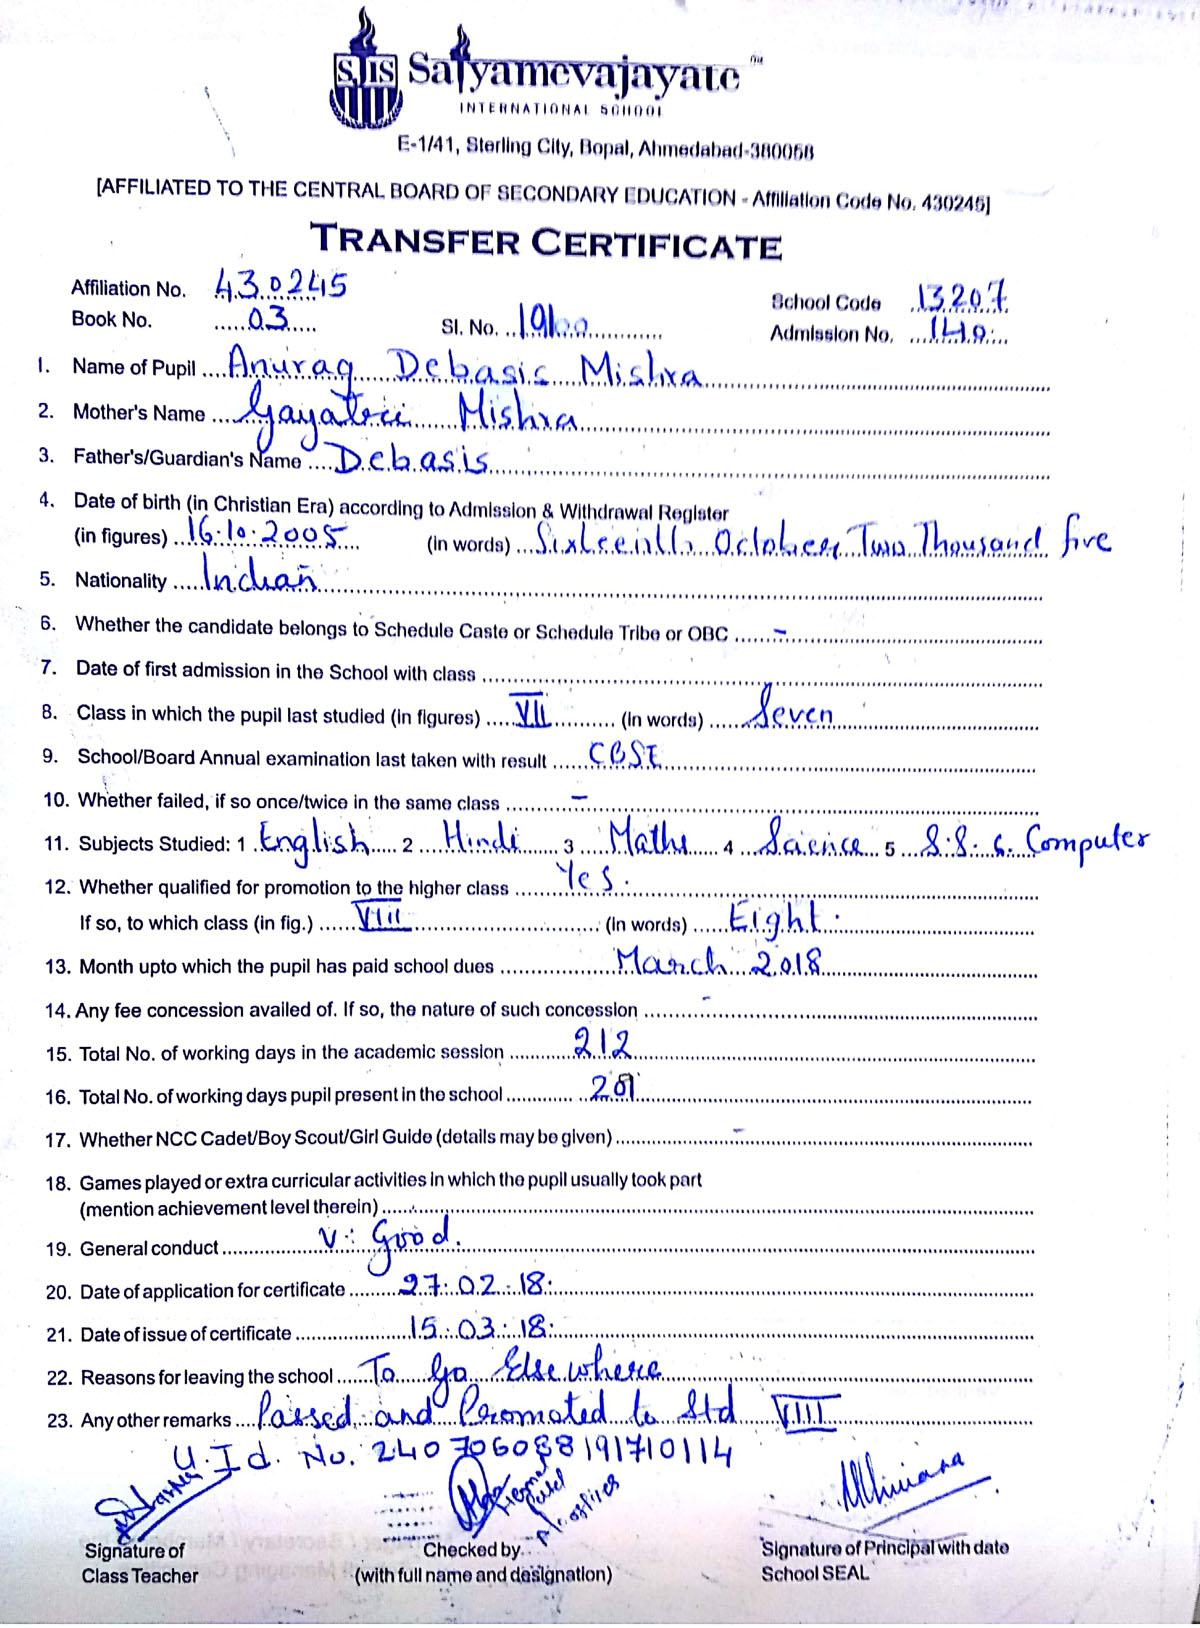 SJIS Satyamevajayate TM
INTERNATIONAL SCHOOL
E-1/41, Sterling City, Bopal, Ahmedabad-380058
[AFFILIATED TO THE CENTRAL BOARD OF SECONDARY EDUCATION - Affiliation Code No. 430245]
TRANSFER CERTIFICATE
Affiliation No. 430245 School Code 13207
Book No. 03 Sl. No. Admission No.
1. Name of Pupil Anurag Debasis Mishra
2. Mother's Name Gayatrii Mishra
3. Father's/Guardian's Name Debasis
4. Date of birth (in Christian Era) according to Admission & Withdrawal Register
(in figures) 16.10.2005 (in words) Sixteenth October Two Thousand five
5. Nationality Indian
6. Whether the candidate belongs to Schedule Caste or Schedule Tribe or OBC -
7. Date of first admission in the School with class
8. Class in which the pupil last studied (in figures) VII (in words) Seven
9. School/Board Annual examination last taken with result CBSE
10. Whether failed, if so once/twice in the same class -
11. Subjects Studied: 1 English 2 Hindi 3 Maths 4 Science 5 S.S. 6. Computer
12. Whether qualified for promotion to the higher class Yes.
If so, to which class (in fig.) VIII (in words) Eight.
13. Month upto which the pupil has paid school dues March 2018
14. Any fee concession availed of. If so, the nature of such concession -
15. Total No. of working days in the academic session 212
16. Total No. of working days pupil present in the school 201
17. Whether NCC Cadet/Boy Scout/Girl Guide (details may be given) -
18. Games played or extra curricular activities in which the pupil usually took part
(mention achievement level therein)
19. General conduct V. Good.
20. Date of application for certificate 27.02.18.
21. Date of issue of certificate 15.03.18.
22. Reasons for leaving the school To Go Elsewhere
23. Any other remarks Passed and Promoted to Std VIII
U.Id. No. 240706088191710114
Signature of Checked by Signature of Principal with date
Class Teacher (with full name and designation) School SEAL